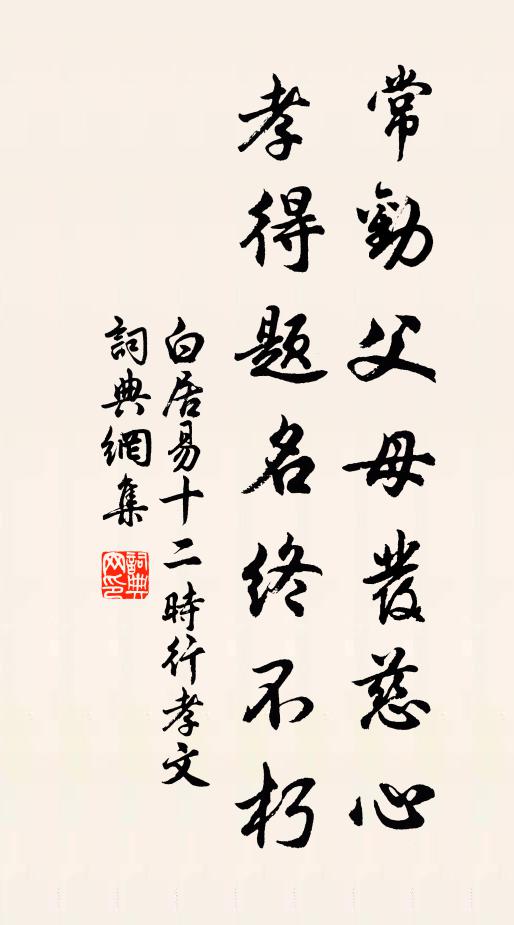 常勸父母發慈心
孝得題名終不朽
白居易十二時行孝文
詞典網集
詞典
网印